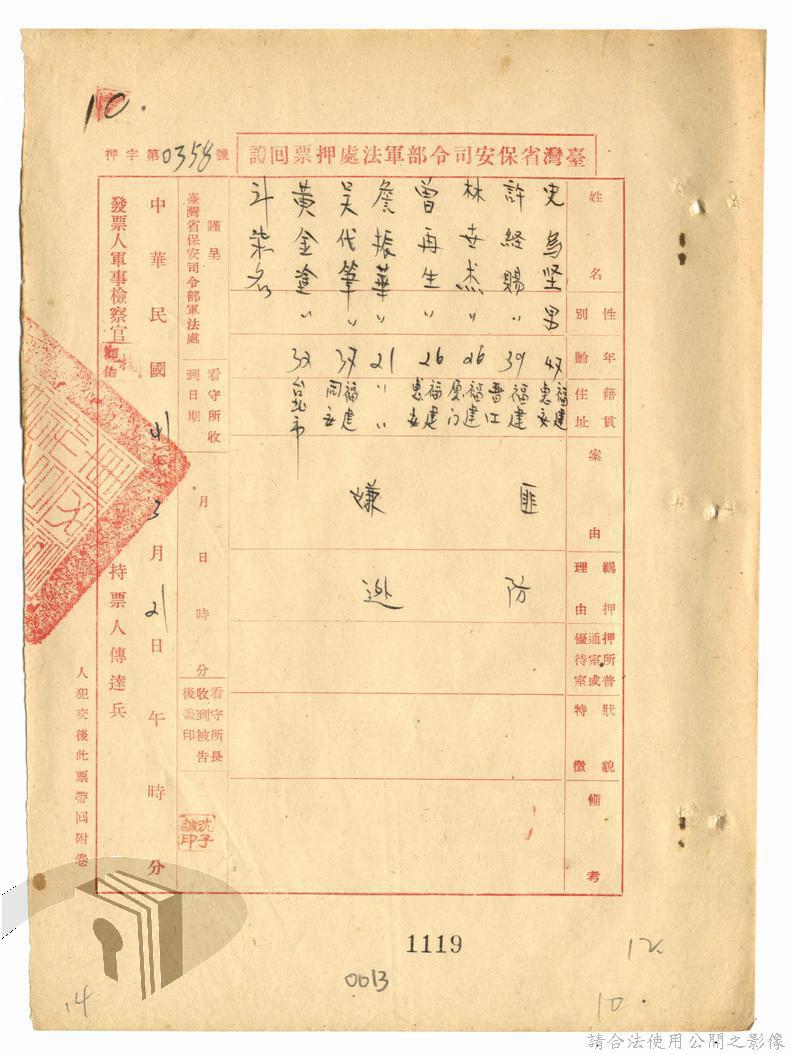 10.
臺灣省保安司令部軍法處押票回證
押字第0358號
姓名
性別
年齡
籍貫
住址
案由
羈押
理由
押所普
通室或
優待室
狀貌
特徵
備考
史為堅 男 47 福建惠安
許經賜 〃 39 福建晋江
林女杰 〃 26 福建厦门
曾再生 〃 26 福建惠安
詹振華 〃 21 〃 〃
吴代筆 〃 37 福建同安
黄金塗 〃 37 台北市
斗柒名
匪嫌
防逃
謹呈
臺灣省保安司令部軍法處
看守所收
到日期
月 日 時 分
看守所長
收到被告
後蓋印
中華民國41年3月21日 午 時 分
發票人軍事檢察官
持票人傳達兵
人犯交後此票帶回附卷
1119
0013
12.
10.
14
請合法使用公開之影像